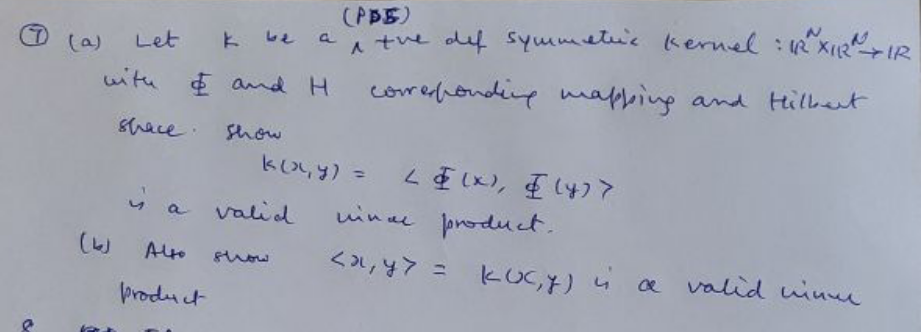 (PDS)
⑦ (a) Let K be a ∧ +ve def symmetric kernel : ℝᴺ×ℝᴺ→ℝ
with Φ and H corresponding mapping and Hilbert
space. show
k(x,y) = < Φ(x), Φ(y)>
is a valid inner product.
(b) Also show <x,y> = k(x,y) is a valid inner
product